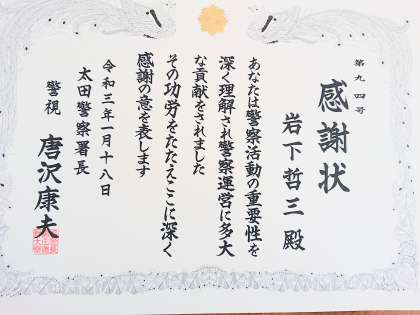 第九四号
感謝状
岩下哲三殿
あなたは警察活動の重要性を
深く理解され警察運営に多大
な貢献をされました
その功労をたたえここに深く
感謝の意を表します
令和三年一月十八日
太田警察署長
警視 唐沢康夫